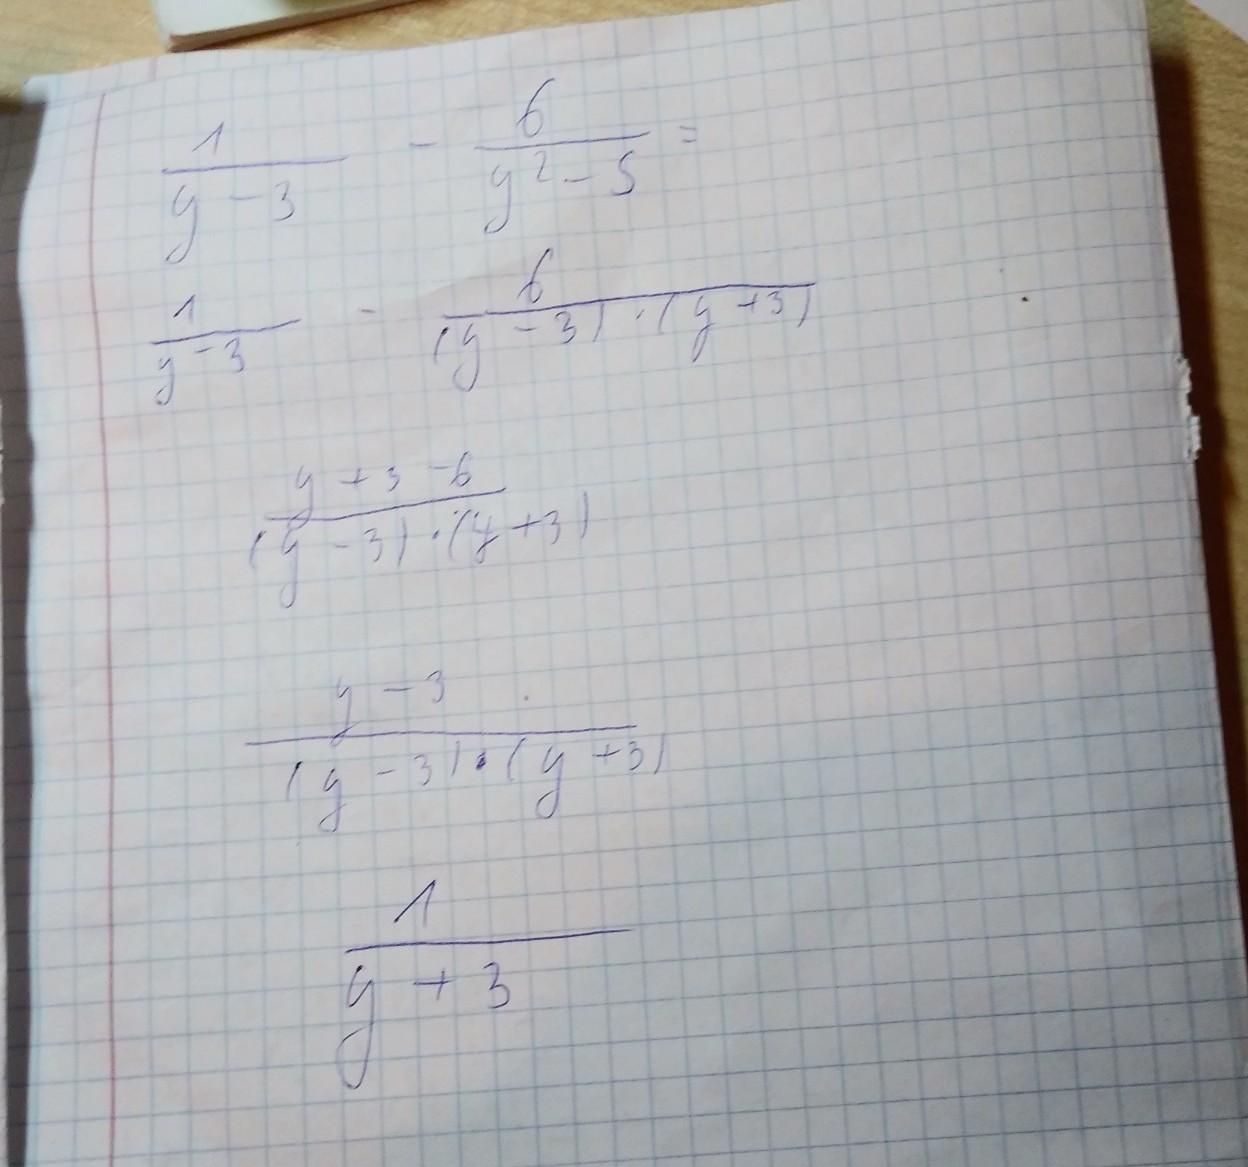 1/(y - 3) - 6/(y² - 5) =
1/(y - 3) - 6/((y - 3) · (y + 3))
(y + 3 - 6)/((y - 3) · (y + 3))
(y - 3)/((y - 3) · (y + 3))
1/(y + 3)